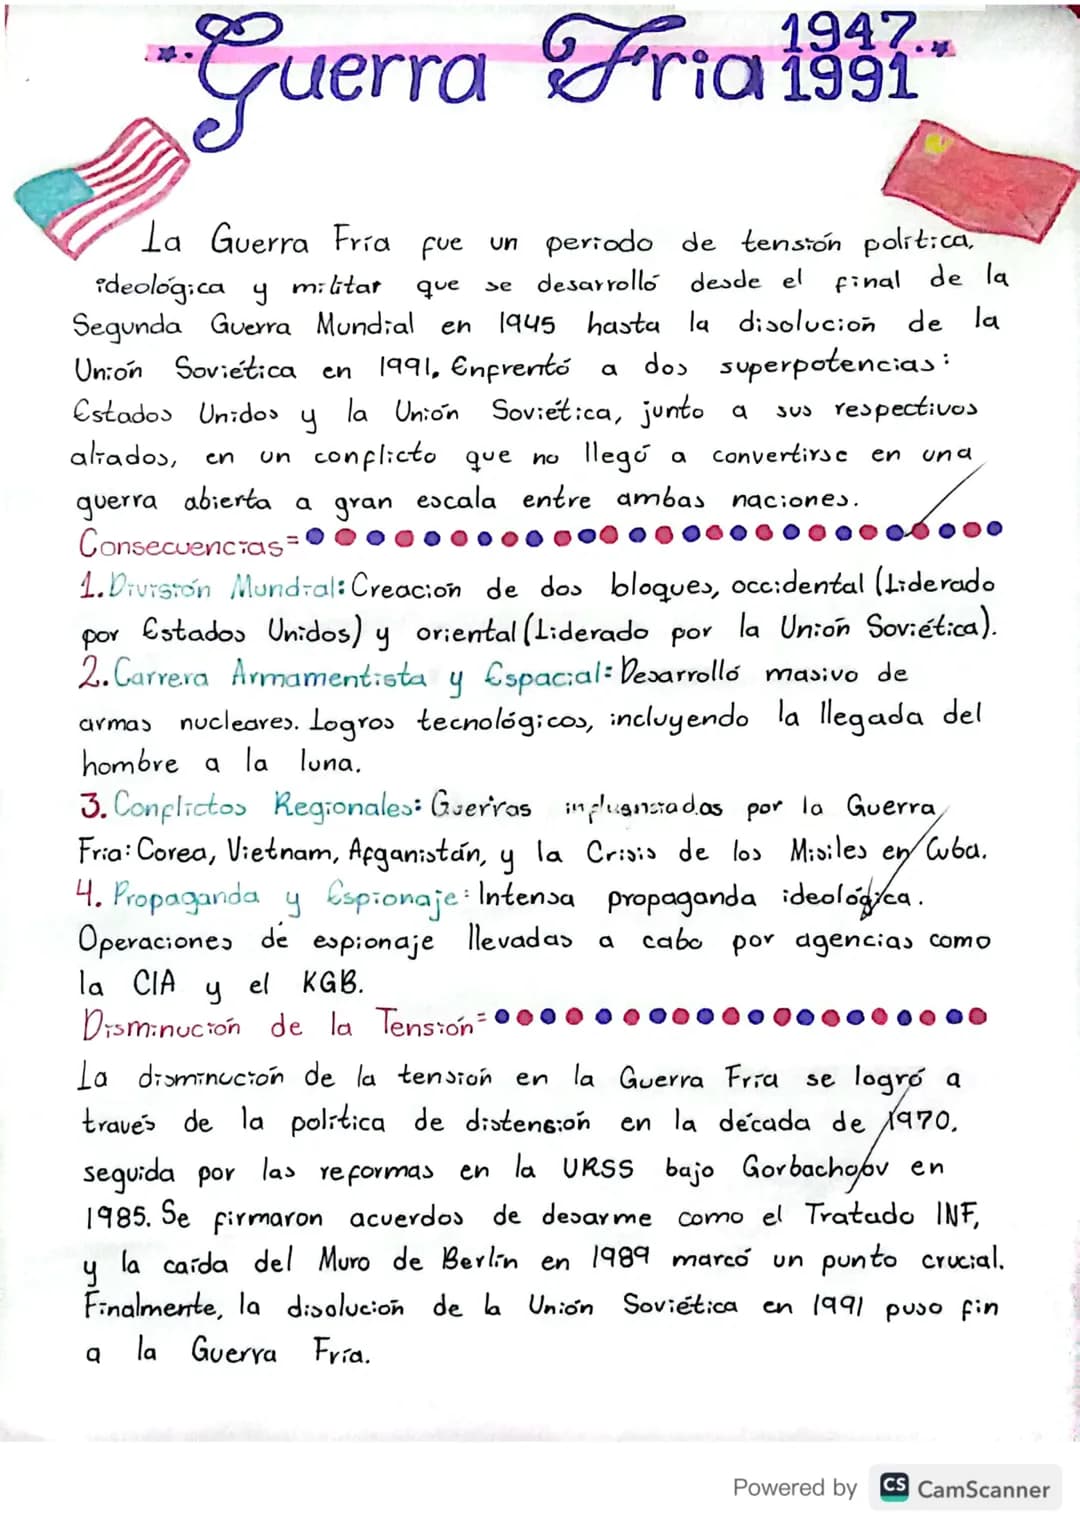 Guerra Fria 1947. 1991
La Guerra Fría fue un periodo de tensión política,
ideológica y militar que se desarrolló desde el final de la
Segunda Guerra Mundial en 1945 hasta la disolución de la
Unión Soviética en 1991. Enfrentó a dos superpotencias:
Estados Unidos y la Unión Soviética, junto a sus respectivos
aliados, en un conflicto que no llegó a convertirse en una
guerra abierta a gran escala entre ambas naciones.
Consecuencias=
1. División Mundial: Creación de dos bloques, occidental (Liderado
por Estados Unidos) y oriental (Liderado por la Unión Soviética).
2. Carrera Armamentista y Espacial: Desarrolló masivo de
armas nucleares. Logros tecnológicos, incluyendo la llegada del
hombre a la luna.
3. Conflictos Regionales: Guerras influenciadas por la Guerra
Fria: Corea, Vietnam, Afganistán, y la Crisis de los Misiles en Cuba.
4. Propaganda y Espionaje: Intensa propaganda ideológica.
Operaciones de espionaje llevadas a cabo por agencias como
la CIA y el KGB.
Disminución de la Tensión=
La disminución de la tensión en la Guerra Fría se logró a
través de la política de distensión en la década de 1970,
seguida por las reformas en la URSS bajo Gorbachov en
1985. Se firmaron acuerdos de desarme como el Tratado INF,
y la caída del Muro de Berlín en 1989 marcó un punto crucial.
Finalmente, la disolución de la Unión Soviética en 1991 puso fin
a la Guerra Fría.
Powered by CS CamScanner